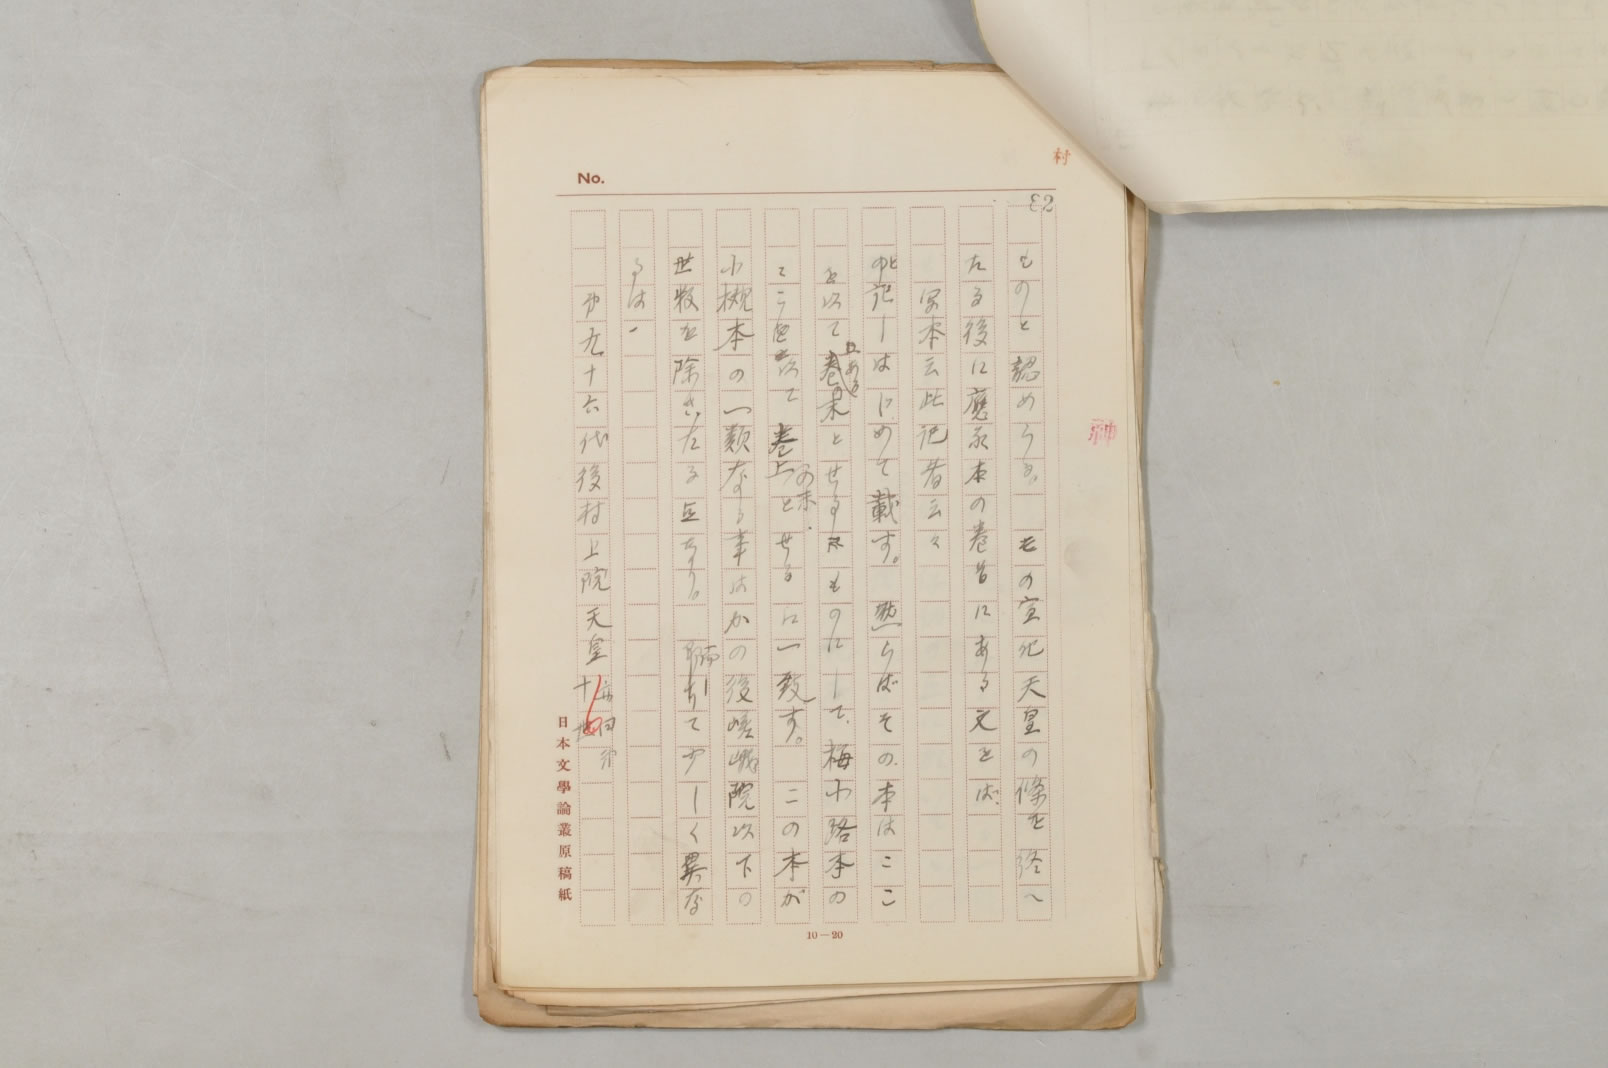 No.
村
神
ものと認めらる。その宣化天皇の條を終へ
たる後に應永本の巻首にある文をば、
写本云此記者云々
と記しはじめて載す。然らばその本はここ
を以て巻の末とせるものにして、梅小路本の
ここを以て巻上の末とせるに一致す。この本が
小槻本の一類なる事はかの後嵯峨院以下の
世數を除きたる点なり。而して少しく異な
るは、
第九十六代後村上院天皇
日本文學論叢原稿紙
10—20